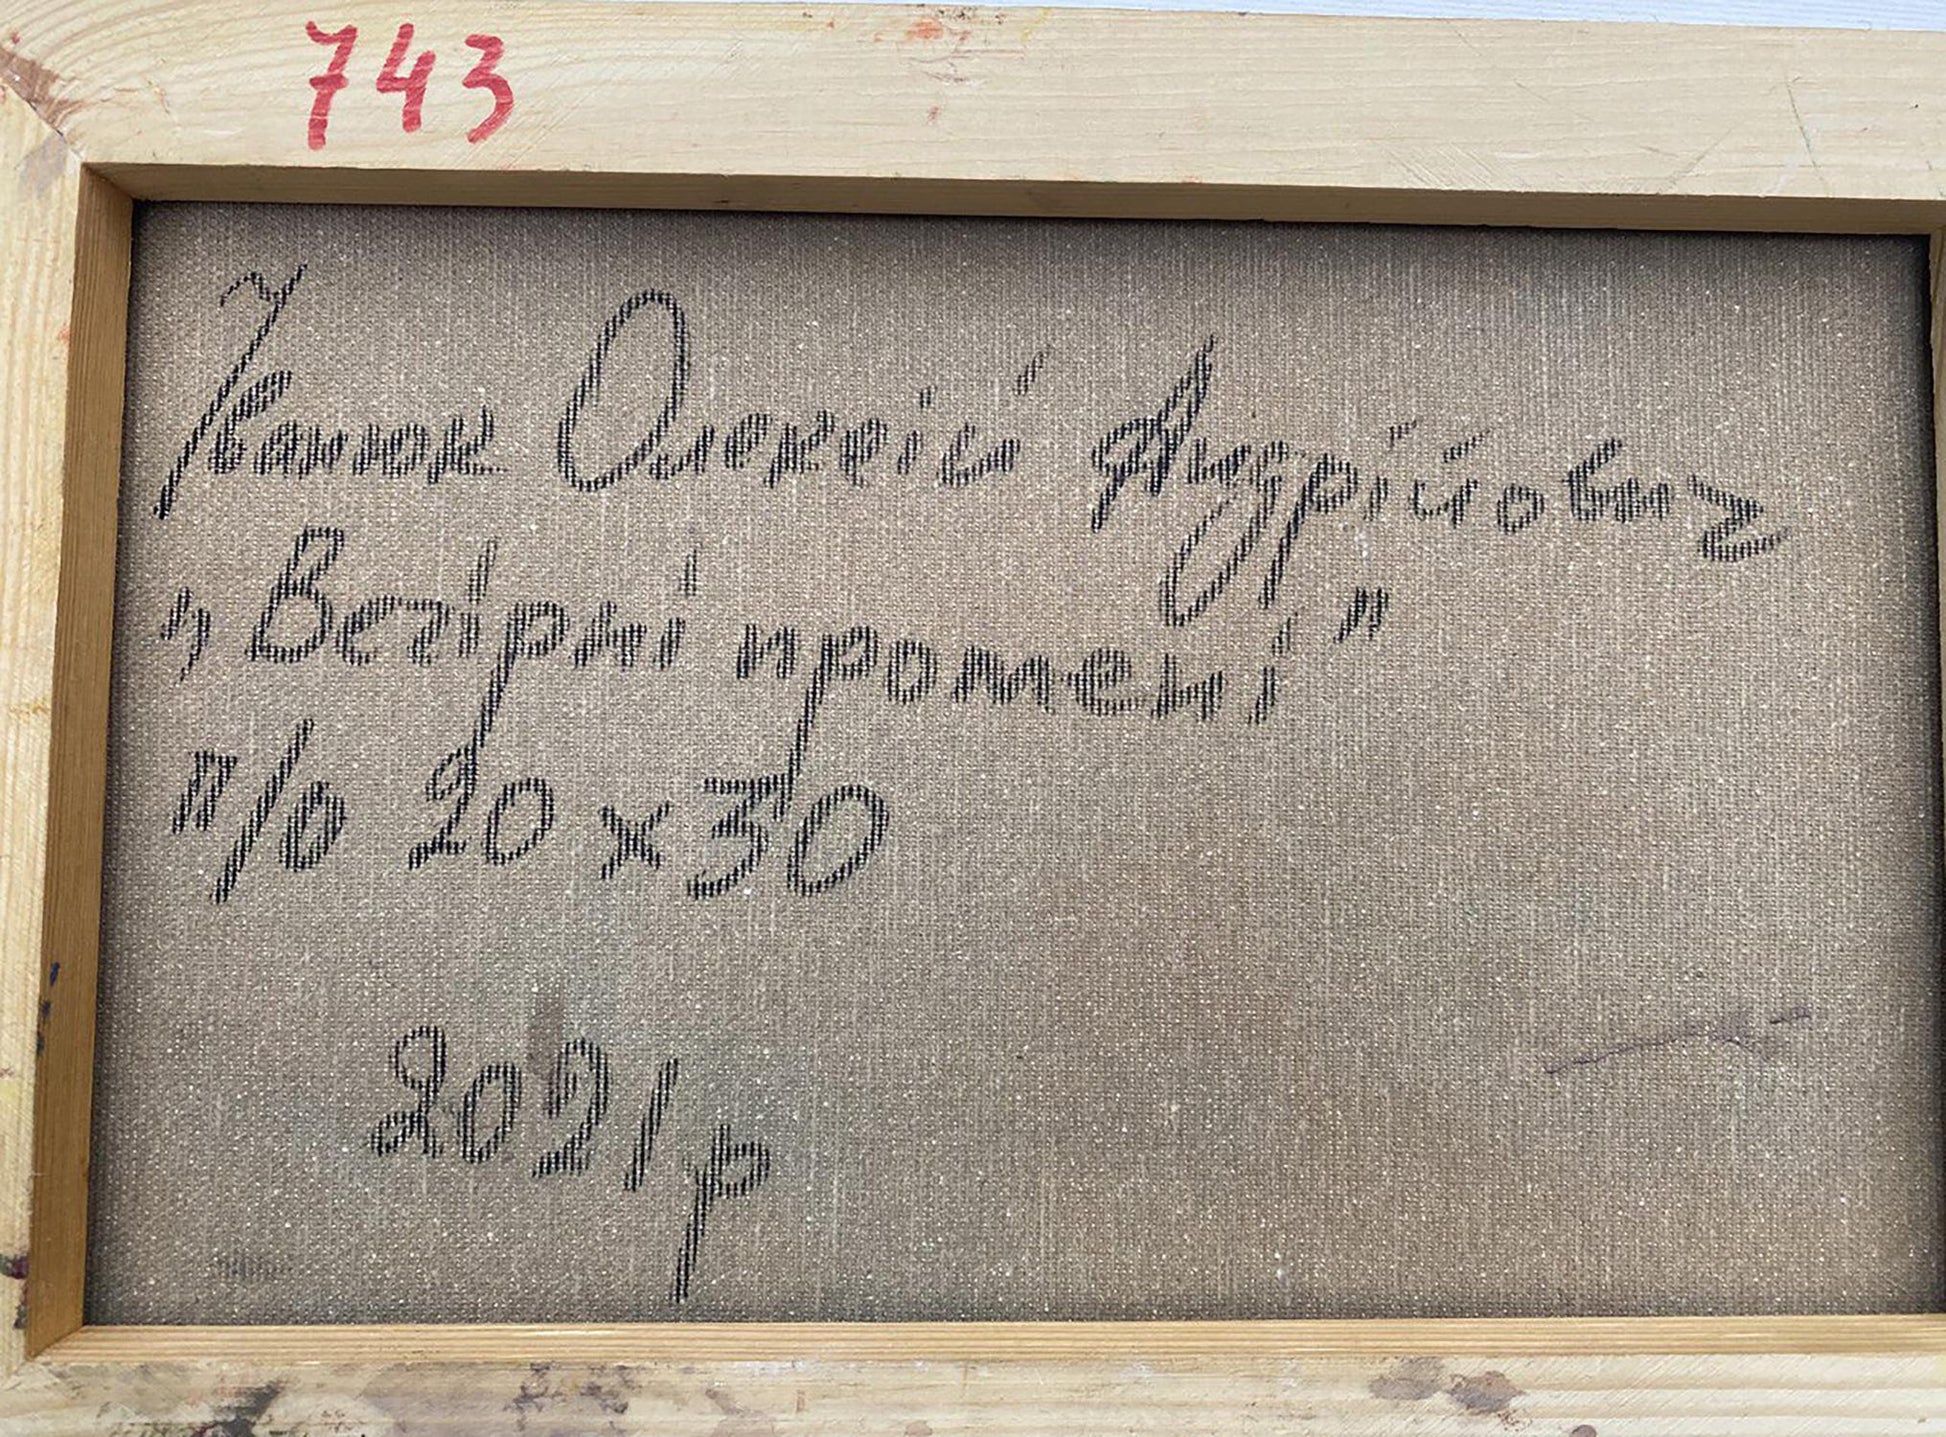 743
Іванюк Олексій Андрійович
„Вечірні промені”
п/о 20 х 30
2021 р